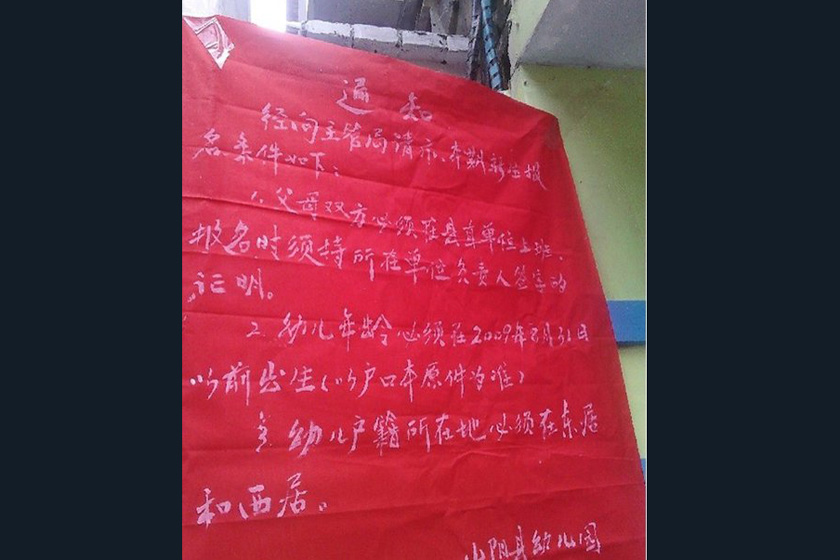 通知
经向主管局请示、本期新生报
名条件如下、
1、父母双方必须在县直单位上班、
报名时须持所在单位负责人签字的
证明。
2、幼儿年龄必须在2009年8月31日
以前出生(以户口本原件为准)
3、幼儿户籍所在地必须在东居
和西居。
山阳县幼儿园